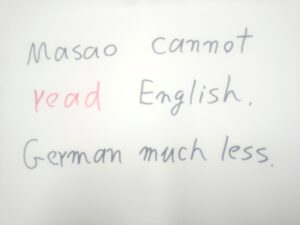 Masao cannot
read English.
German much less.